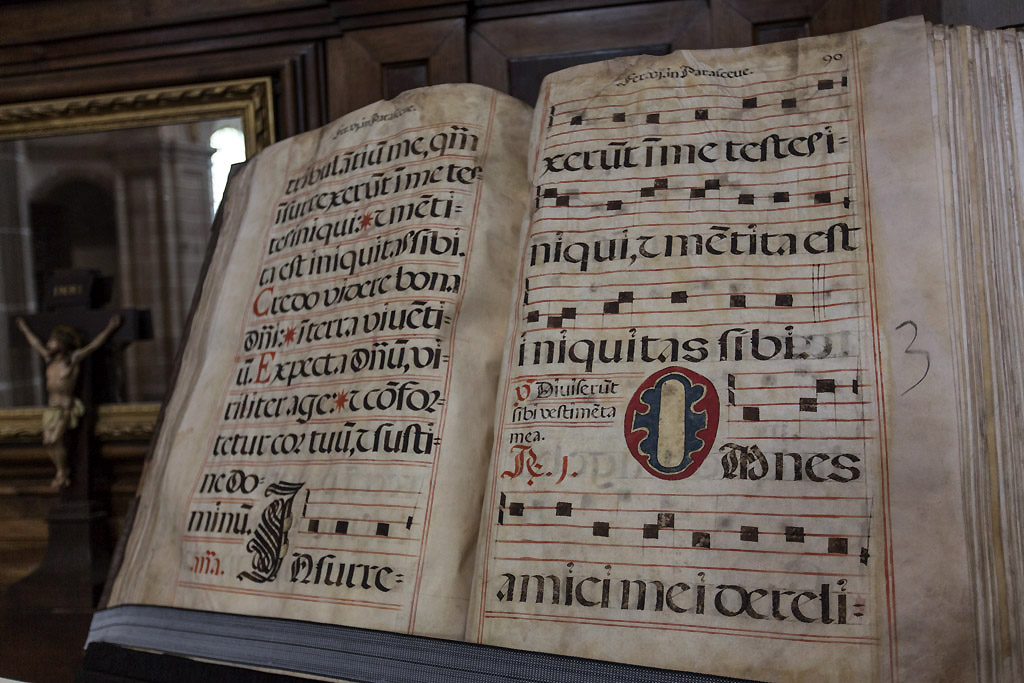 Fer. vj. in Parasceue.
tribulātiū me, qm̄
īsurrexerūt ī me tes
tes iniqui:* ⁊ mēti-
ta est iniquitas sibi.
Credo videre bona
Dñi:* ī terra viuēti-
ū. Expecta Dñū, vi-
riliter age:* ⁊ cōfor-
tetur cor tuū, ⁊ susti-
ne Do-
minū.
añ̄a. Insurre-
Fer. vj. in Parasceue. 90
xerūt ī me testes i-
niqui, ⁊ mētita est
iniquitas sibi.
℣ Diuiserūt
sibi vestimēta
mea.
℟. j. Omnes
amici mei dereli-
3
INRI